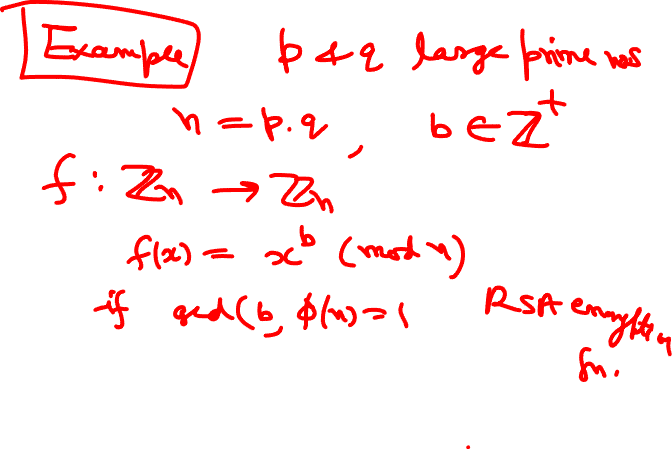 Example p & q large prime nos
n = p.q, b ∈ ℤ⁺
f : ℤₙ → ℤₙ
f(x) = x^b (mod n)
if gcd(b, φ(n) = 1 RSA encryption
fn.